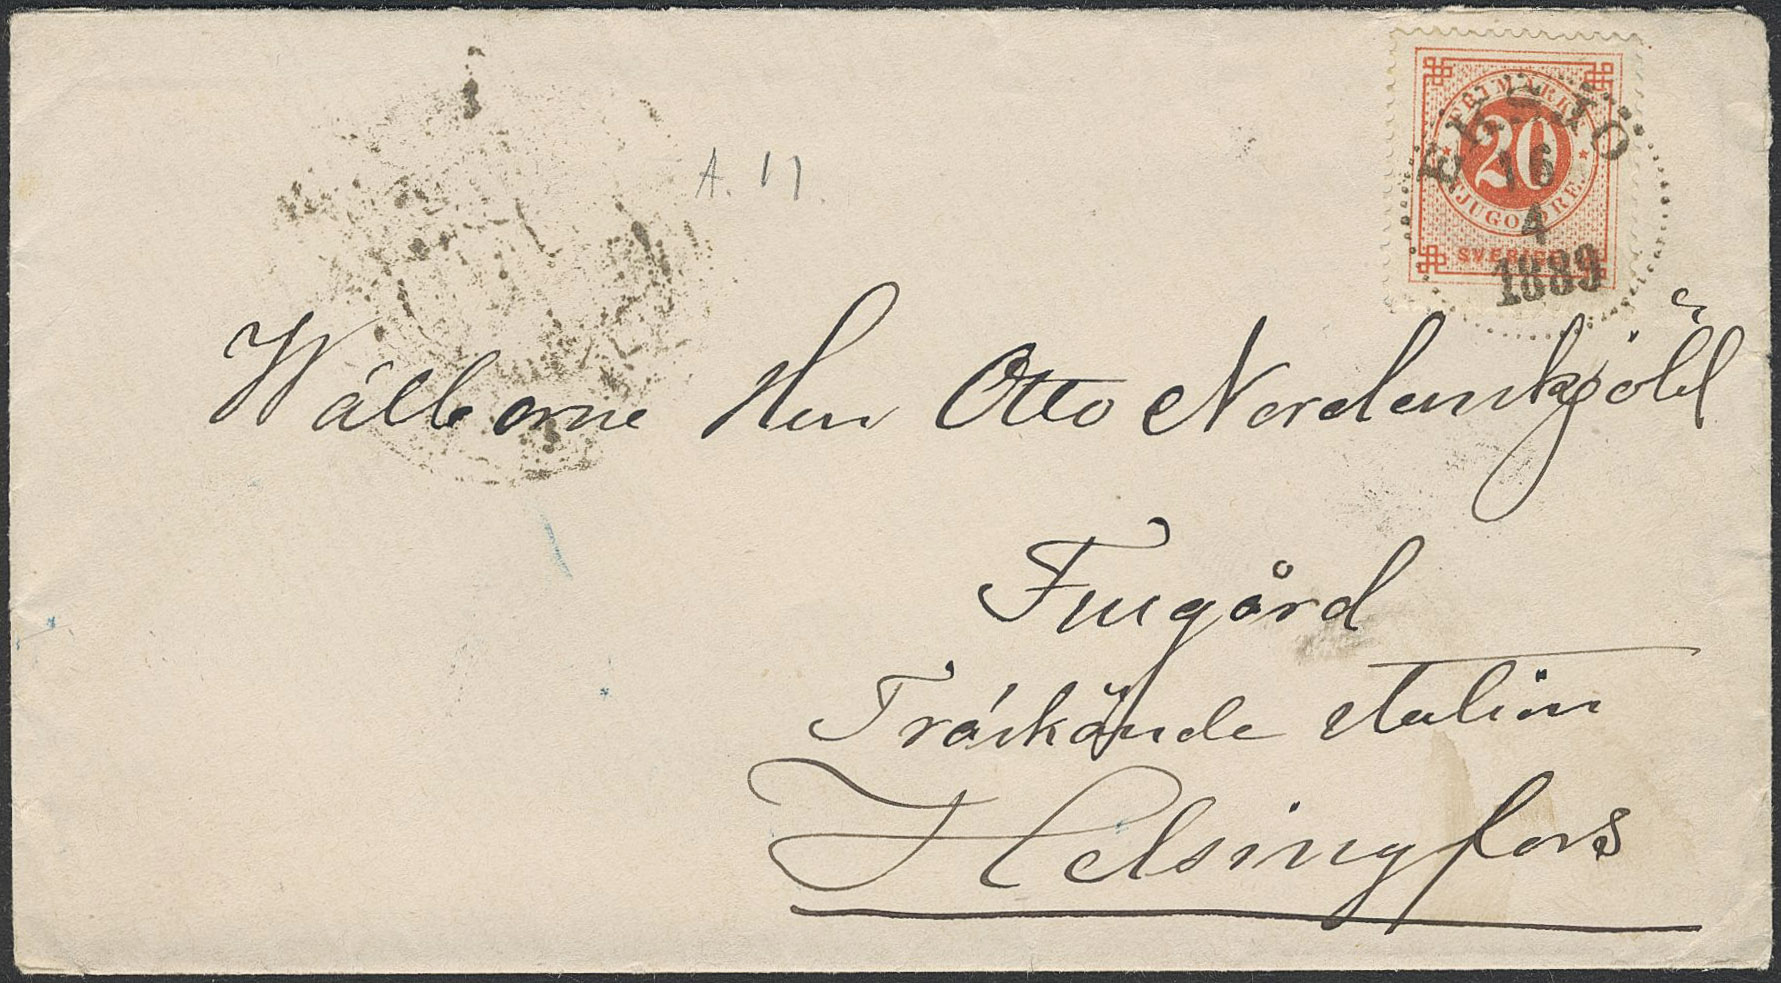 FRIMÄRKE
20
TJUGO ÖRE.
SVERIGE
EKSJÖ
16
4
1889
A. 17.
Wälborne Herr Otto Nordenskjöld
Frugård
Träskände station
Helsingfors